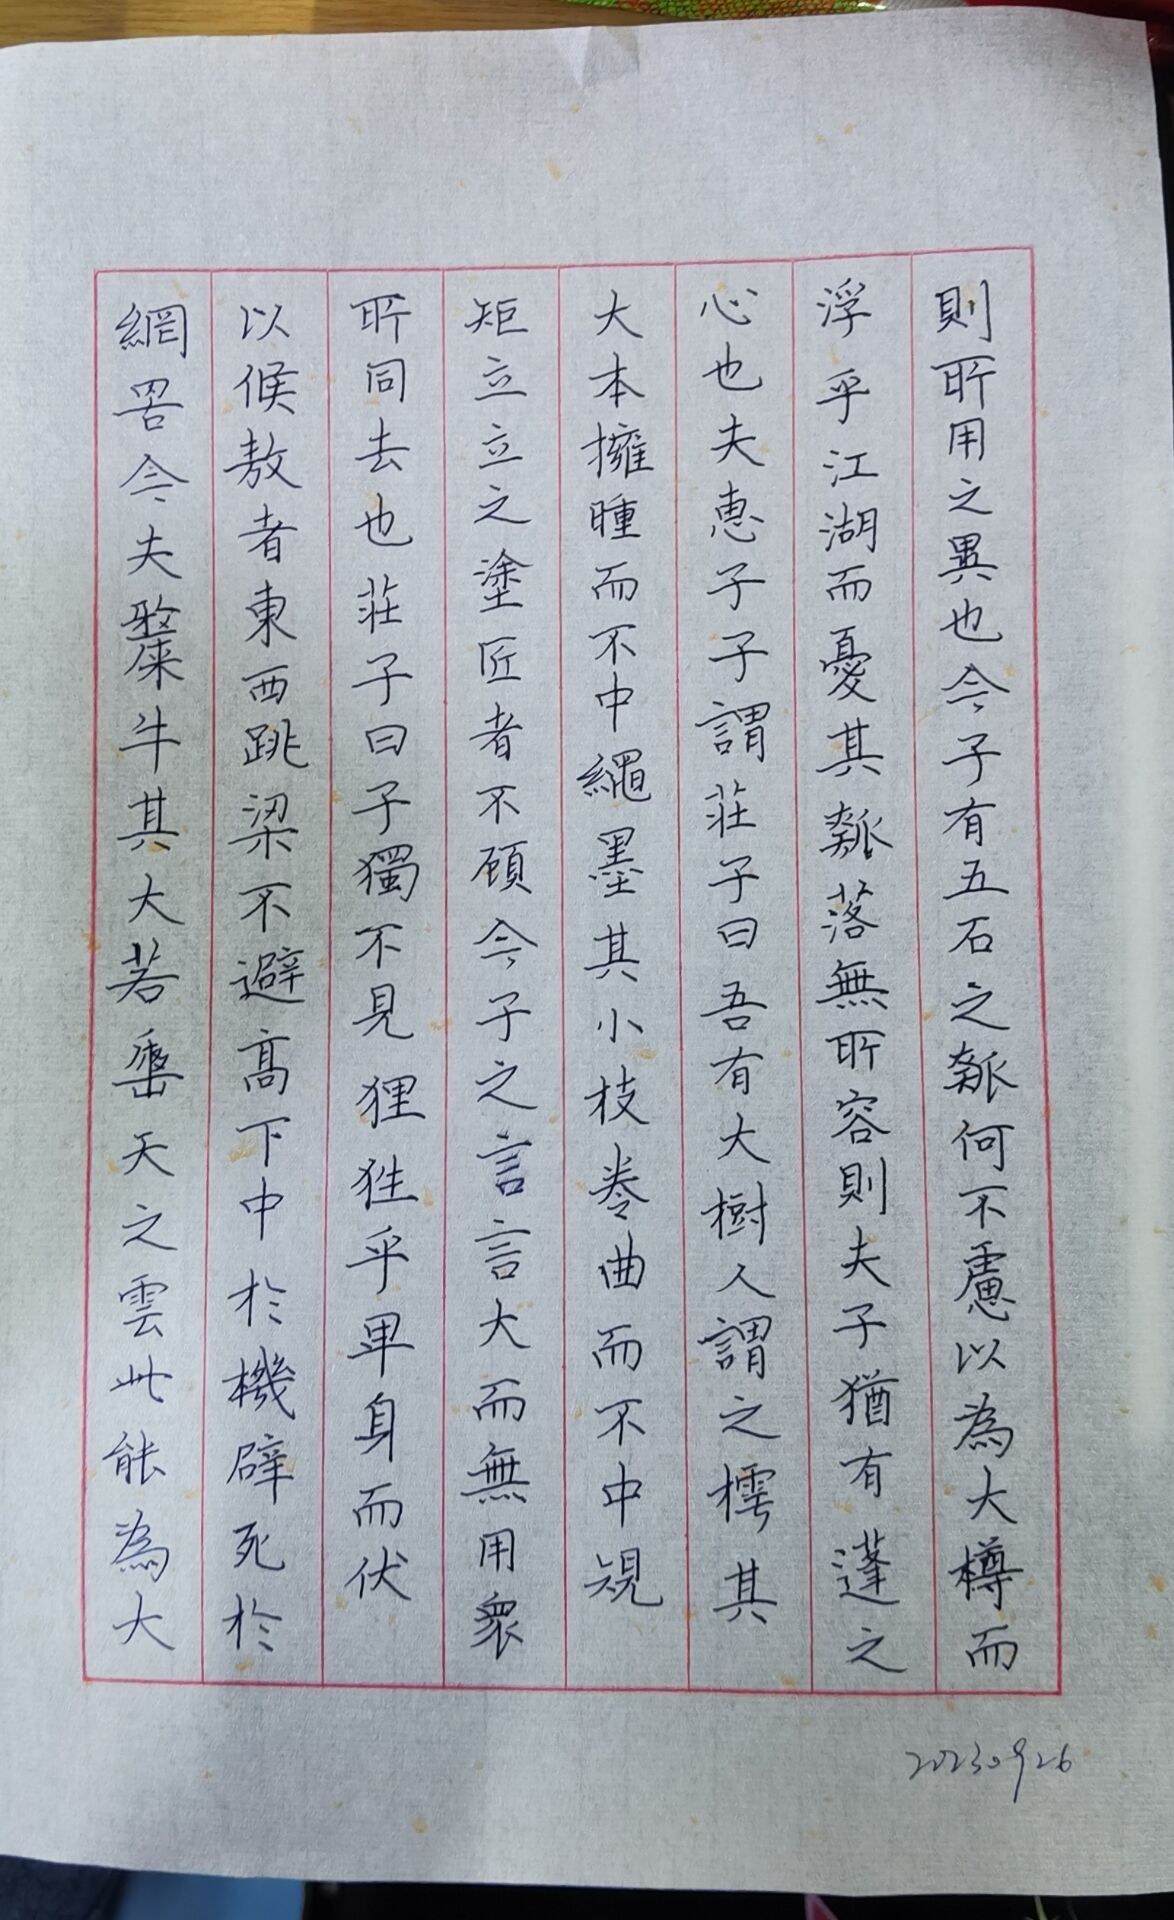 則所用之異也今子有五石之瓠何不慮以為大樽而
浮乎江湖而憂其瓠落無所容則夫子猶有蓬之
心也夫惠子子謂莊子曰吾有大樹人謂之樗其
大本擁腫而不中繩墨其小枝卷曲而不中規
矩立立之塗匠者不顧今子之言言大而無用衆
所同去也莊子曰子獨不見狸狌乎卑身而伏
以候敖者東西跳梁不避高下中於機辟死於
網罟今夫斄牛其大若垂天之雲此能為大
20230926